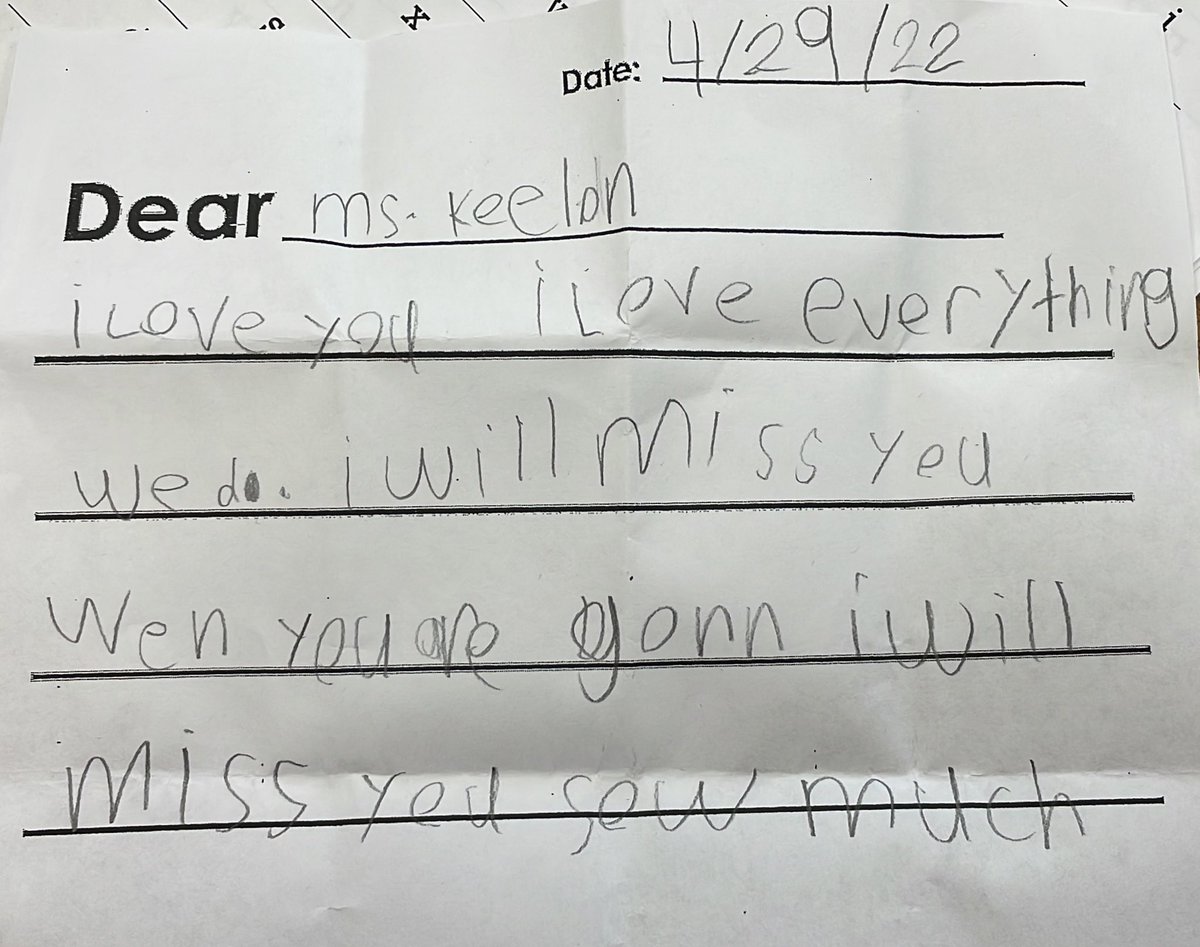 Date: 4/29/22
Dear ms. keelon
i Love you i Love everything
we do. i will miss you
wen you are gonn i will
miss you sow much